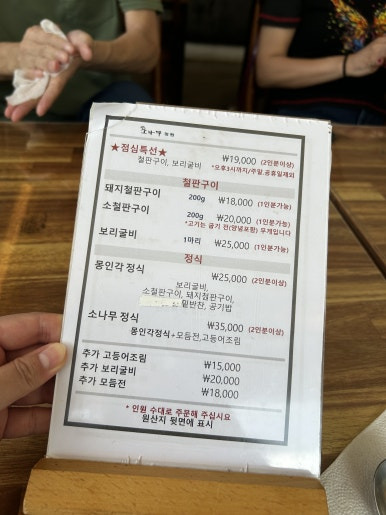 ★점심특선★ ₩19,000 (2인분이상)
철판구이, 보리굴비 *오후3시까지/주말,공휴일제외
철판구이
돼지철판구이 200g ₩18,000 (1인분가능)
소철판구이 200g ₩20,000 (1인분가능)
*고기는 굽기 전(양념포함) 무게입니다
보리굴비 1마리 ₩25,000 (1인분가능)
정식
몽인각 정식 ₩25,000 (2인분이상)
보리굴비,
소철판구이, 돼지철판구이,
밑반찬, 공기밥
소나무 정식 ₩35,000 (2인분이상)
몽인각정식+모듬전,고등어조림
추가 고등어조림 ₩15,000
추가 보리굴비 ₩20,000
추가 모듬전 ₩18,000
* 인원 수대로 주문해 주십시요
원산지 뒷면에 표시